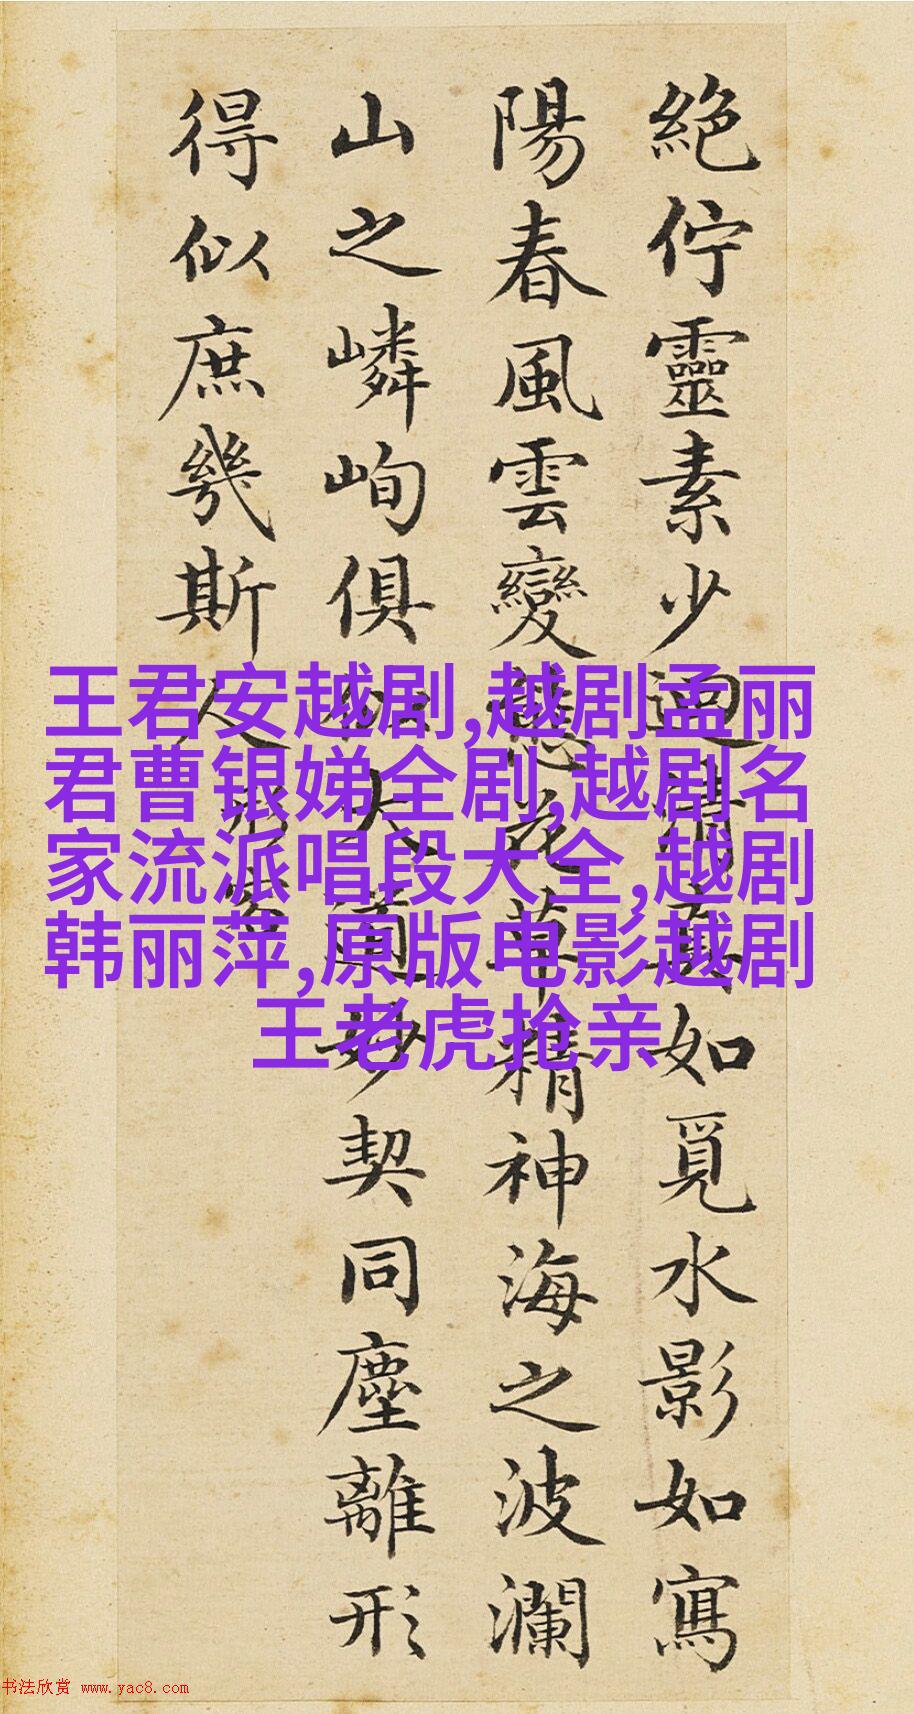 絕佇靈素少迴清真如覓水影如寫
陽春風雲變態花草精神海之波瀾
山之嶙峋俱似大道妙契同塵離形
得似庶幾斯人
形容
王君安越剧,越剧孟丽
君曹银娣全剧,越剧名
家流派唱段大全,越剧
韩丽萍,原版电影越剧
王老虎抢亲
书法欣赏 www.yac8.com